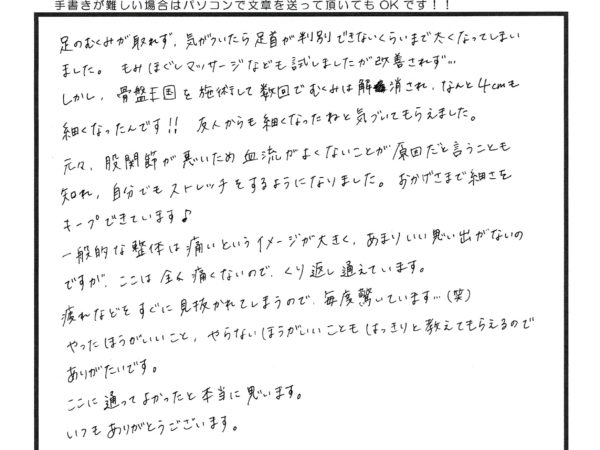 手書きが難しい場合はパソコンで文章を送って頂いてもOKです！！
足のむくみが取れず、気がついたら足首が判別できないくらいまで太くなってしまい
ました。もみほぐしマッサージなども試しましたが改善されず…
しかし、骨盤王国を施術して数回でむくみは解消され、なんと4cmも
細くなったんです!! 友人からも細くなったねと気づいてもらえました。
元々、股関節が悪いため血流がよくないことが原因だと言うことも
知れ、自分でもストレッチをするようになりました。おかげさまで細さを
キープできています♪
一般的な整体は痛いというイメージが大きく、あまりいい思い出がないの
ですが、ここは全く痛くないので、くり返し通えています。
疲れなどをすぐに見抜かれてしまうので、毎度驚しています…(笑)
やったほうがいいこと、やらないほうがいいこともはっきりと教えてもらえるので
ありがたいです。
ここに通ってよかったと本当に思います。
いつもありがとうございます。